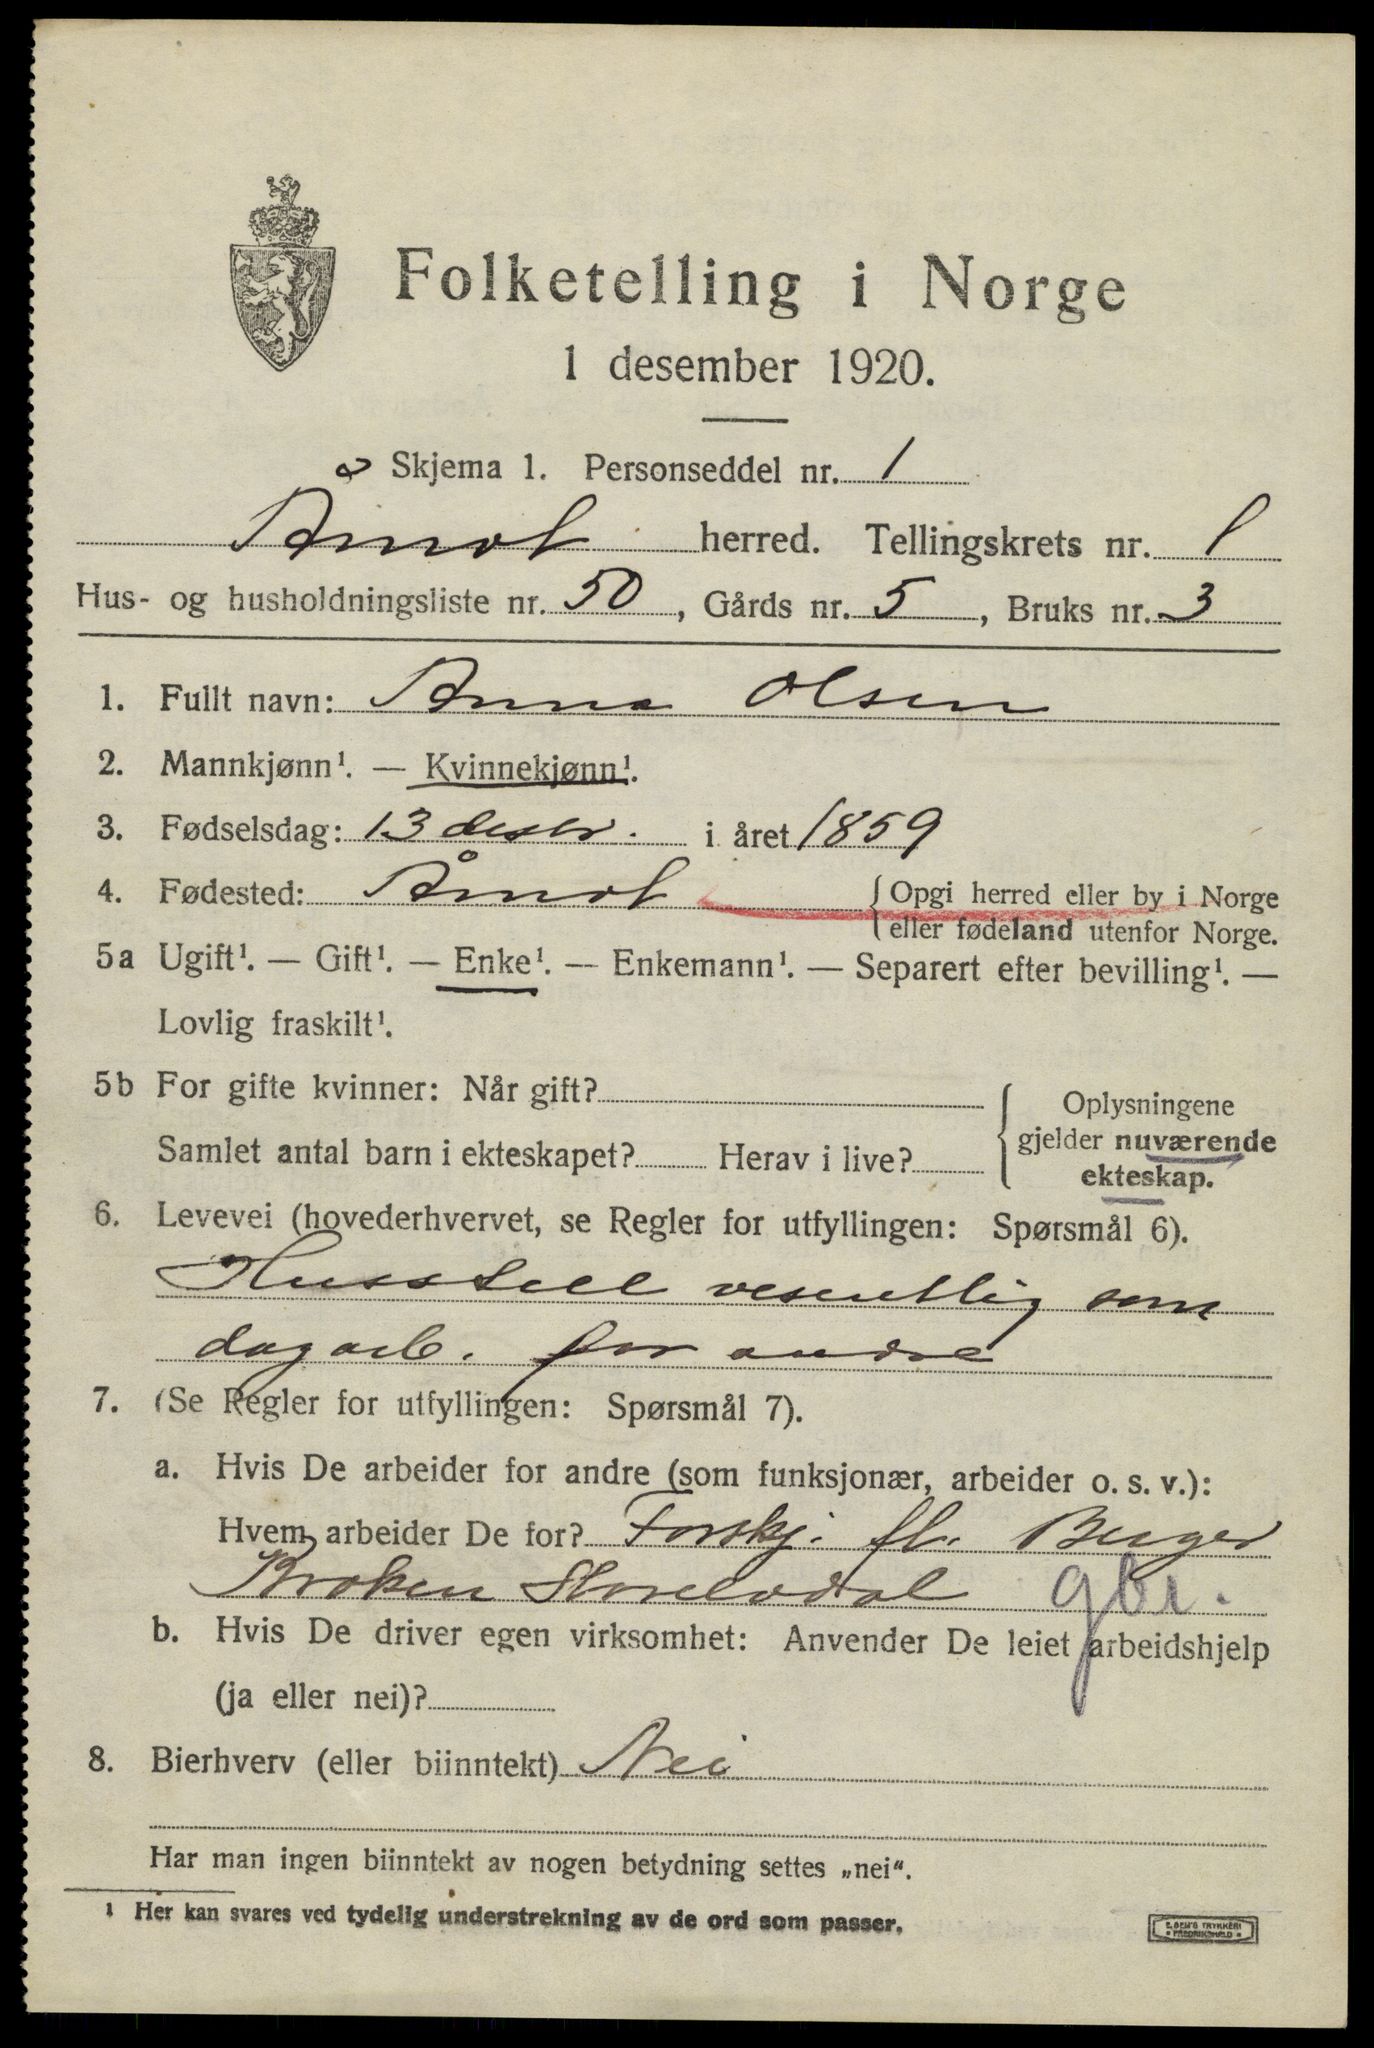 Folketelling i Norge
1 desember 1920.
Skjema 1. Personseddel nr. 1
Åmot herred. Tellingskrets nr. 1
Hus- og husholdningsliste nr. 50, Gårds nr. 5, Bruks nr. 3
1. Fullt navn: Anna Olsen
2. Mannkjønn¹. — Kvinnekjønn¹.
3. Fødselsdag: 13 desbr. i året 1859
4. Fødested: Åmot {Opgi herred eller by i Norge
eller fødeland utenfor Norge.
5a Ugift¹. — Gift¹. — Enke¹. — Enkemann¹. — Separert efter bevilling¹. —
Lovlig fraskilt¹.
5b For gifte kvinner: Når gift?
Samlet antal barn i ekteskapet? Herav i live?
{Oplysningene
gjelder nuværende
ekteskap.
6. Levevei (hovederhvervet, se Regler for utfyllingen: Spørsmål 6).
Husstell vesentlig som
dagarb. for andre
7. (Se Regler for utfyllingen: Spørsmål 7).
a. Hvis De arbeider for andre (som funksjonær, arbeider o. s. v.):
Hvem arbeider De for? Forskj. fl. Birger
Kroken Storelvdal gbr.
b. Hvis De driver egen virksomhet: Anvender De leiet arbeidshjelp
(ja eller nei)?
8. Bierhverv (eller biinntekt) Nei
Har man ingen biinntekt av nogen betydning settes „nei“.
1 Her kan svares ved tydelig understrekning av de ord som passer.
TRYKKERI
FREDRIKSHALD